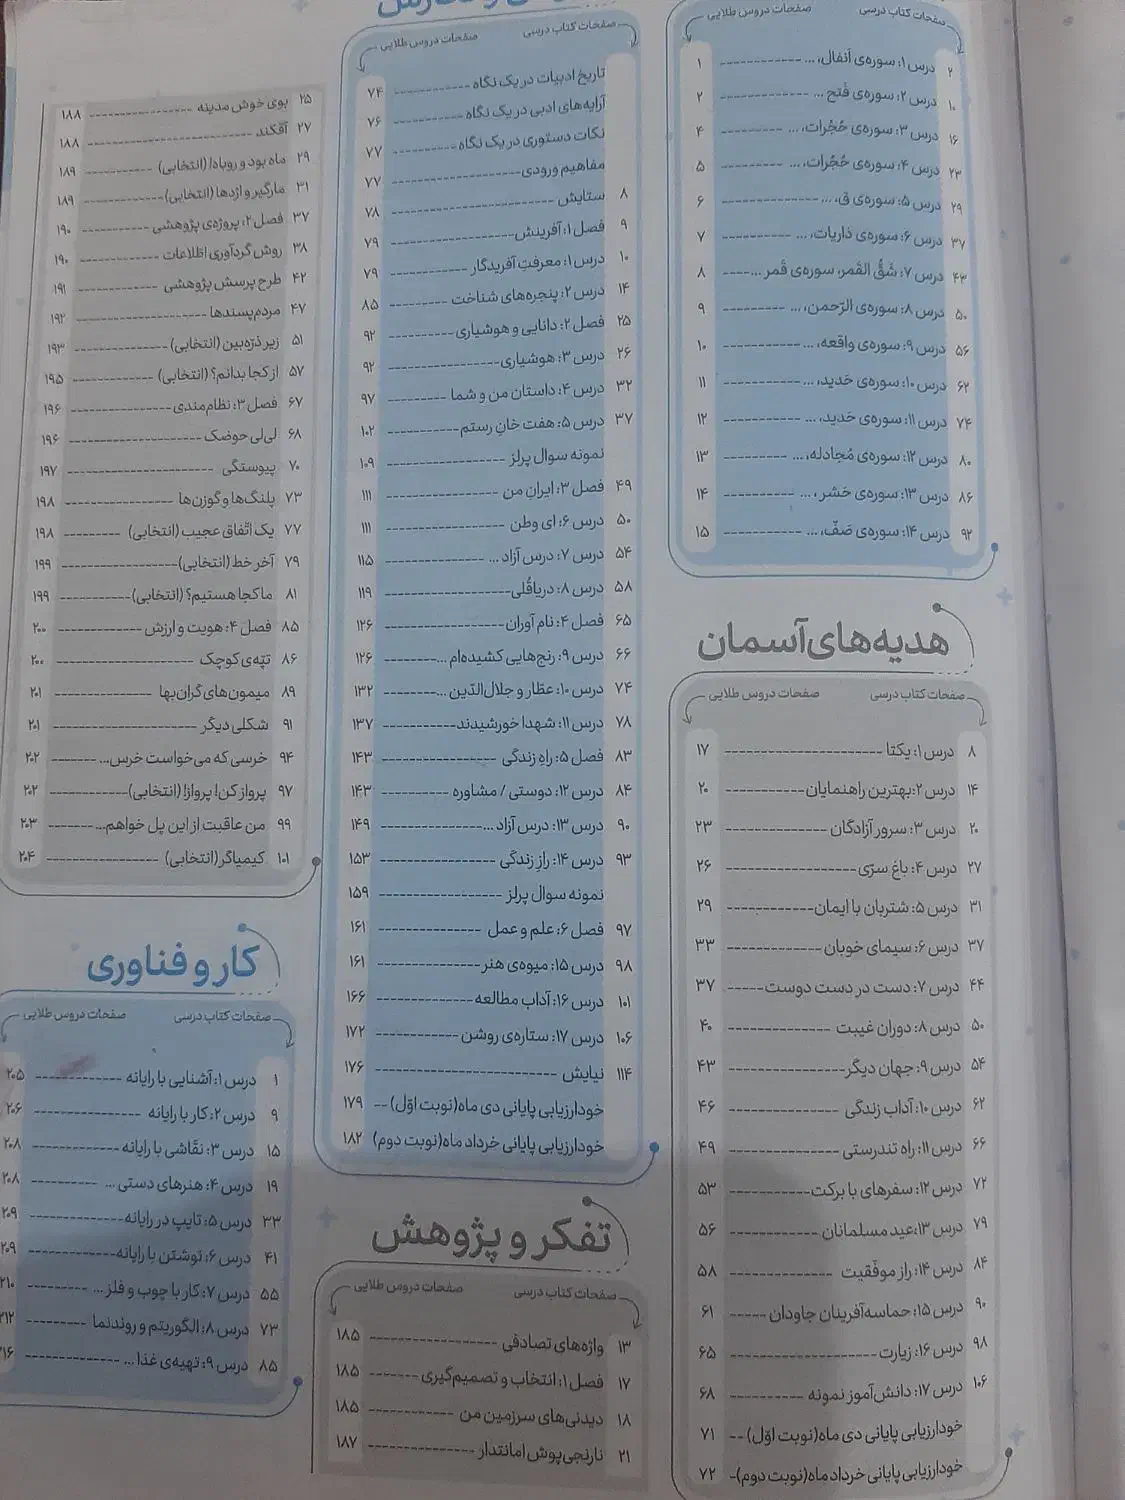 صفحات کتاب درسی صفحات دروس طلایی
۲ درس ۱: سوره‌ی اَنفال، ... ۱
۱۰ درس ۲: سوره‌ی فَتح ... ۲
۱۶ درس ۳: سوره‌ی حُجُرات، ... ۴
۲۳ درس ۴: سوره‌ی حُجُرات، ... ۵
۲۹ درس ۵: سوره‌ی ق، ... ۶
۳۷ درس ۶: سوره‌ی ذاریات، ... ۷
۴۳ درس ۷: شَقُّ القَمَر، سوره‌ی قَمر ... ۸
۵۰ درس ۸: سوره‌ی الرّحمن، ... ۹
۵۶ درس ۹: سوره‌ی واقعه، ... ۱۰
۶۲ درس ۱۰: سوره‌ی حَدید، ... ۱۱
۷۴ درس ۱۱: سوره‌ی حَدید، ... ۱۲
۸۰ درس ۱۲: سوره‌ی مُجادله، ... ۱۳
۸۶ درس ۱۳: سوره‌ی حَشر، ... ۱۴
۹۲ درس ۱۴: سوره‌ی صَفّ، ... ۱۵
هدیه‌های آسمان
صفحات کتاب درسی صفحات دروس طلایی
۸ درس ۱: یکتا ۱۷
۱۴ درس ۲: بهترین راهنمایان ۲۰
۲۰ درس ۳: سرور آزادگان ۲۳
۲۷ درس ۴: باغ سرّی ۲۶
۳۱ درس ۵: شتربان با ایمان ۲۹
۳۷ درس ۶: سیمای خوبان ۳۳
۴۴ درس ۷: دست در دست دوست ۳۷
۵۰ درس ۸: دوران غیبت ۴۰
۵۴ درس ۹: جهان دیگر ۴۳
۶۲ درس ۱۰: آداب زندگی ۴۶
۶۶ درس ۱۱: راه تندرستی ۴۹
۷۲ درس ۱۲: سفرهای با برکت ۵۳
۷۹ درس ۱۳: عید مسلمانان ۵۶
۸۴ درس ۱۴: راز موفّقیت ۵۸
۹۰ درس ۱۵: حماسه‌آفرینان جاودان ۶۱
۹۸ درس ۱۶: زیارت ۶۵
۱۰۶ درس ۱۷: دانش‌آموز نمونه ۶۸
خودارزیابی پایانی دی ماه (نوبت اوّل) ۷۱
خودارزیابی پایانی خرداد ماه (نوبت دوم) ۷۲
صفحات کتاب درسی صفحات دروس طلایی
تاریخ ادبیات در یک نگاه ۷۴
آرایه‌های ادبی در یک نگاه ۷۶
نکات دستوری در یک نگاه ۷۷
مفاهیم ورودی ۷۷
۸ ستایش ۷۸
۹ فصل ۱: آفرینش ۷۹
۱۰ درس ۱: معرفتِ آفریدگار ۷۹
۱۴ درس ۲: پنجره‌های شناخت ۸۵
۲۵ فصل ۲: دانایی و هوشیاری ۹۲
۲۶ درس ۳: هوشیاری ۹۲
۳۲ درس ۴: داستان من و شما ۹۷
۳۷ درس ۵: هفت خانِ رستم ۱۰۲
نمونه سوال پرلز ۱۰۹
۴۹ فصل ۳: ایرانِ من ۱۱۱
۵۰ درس ۶: ای وطن ۱۱۱
۵۴ درس ۷: درس آزاد ... ۱۱۵
۵۸ درس ۸: دریاقُلی ۱۱۹
۶۵ فصل ۴: نام آوران ۱۲۶
۶۶ درس ۹: رنج‌هایی کشیده‌ام ... ۱۲۶
۷۴ درس ۱۰: عطّار و جلال‌الدّین ... ۱۳۲
۷۸ درس ۱۱: شهدا خورشیدند ۱۳۷
۸۳ فصل ۵: راهِ زندگی ۱۴۳
۸۴ درس ۱۲: دوستی / مشاوره ۱۴۳
۹۰ درس ۱۳: درس آزاد ... ۱۴۹
۹۳ درس ۱۴: رازِ زندگی ۱۵۳
نمونه سوال پرلز ۱۵۹
۹۷ فصل ۶: علم و عمل ۱۶۱
۹۸ درس ۱۵: میوه‌ی هنر ۱۶۱
۱۰۱ درس ۱۶: آداب مطالعه ۱۶۶
۱۰۶ درس ۱۷: ستاره‌ی روشن ۱۷۲
۱۱۴ نیایش ۱۷۶
خودارزیابی پایانی دی ماه (نوبت اوّل) ۱۷۹
خودارزیابی پایانی خرداد ماه (نوبت دوم) ۱۸۲
تفکر و پژوهش
صفحات کتاب درسی صفحات دروس طلایی
۱۳ واژه‌های تصادفی ۱۸۵
۱۷ فصل ۱: انتخاب و تصمیم‌گیری ۱۸۵
۱۸ دیدنی‌های سرزمین من ۱۸۵
۲۱ نارنجی‌پوش امانتدار ۱۸۷
۲۵ بوی خوش مدینه ۱۸۸
۲۷ آفکند ۱۸۸
۲۹ ماه بود و روباه! (انتخابی) ۱۸۹
۳۱ مارگیر و اژدها (انتخابی) ۱۸۹
۳۷ فصل ۲: پروژه‌ی پژوهشی ۱۹۰
۳۸ روش گردآوری اطّلاعات ۱۹۰
۴۲ طرح پرسش پژوهشی ۱۹۱
۴۷ مردم‌پسندها ۱۹۲
۵۱ زیر ذرّه‌بین (انتخابی) ۱۹۳
۵۷ از کجا بدانم؟ (انتخابی) ۱۹۵
۶۷ فصل ۳: نظام‌مندی ۱۹۶
۶۸ لی‌لی حوضک ۱۹۶
۷۰ پیوستگی ۱۹۷
۷۳ پلنگ‌ها و گوزن‌ها ۱۹۸
۷۷ یک اتّفاق عجیب (انتخابی) ۱۹۸
۷۹ آخر خط (انتخابی) ۱۹۹
۸۱ ما کجا هستیم؟ (انتخابی) ۱۹۹
۸۵ فصل ۴: هویت و ارزش ۲۰۰
۸۶ تپّه‌ی کوچک ۲۰۰
۸۹ میمون‌های گران‌بها ۲۰۱
۹۱ شکلی دیگر ۲۰۱
۹۴ خرسی که می‌خواست خرس... ۲۰۲
۹۷ پرواز کن! پرواز! (انتخابی) ۲۰۲
۹۹ من عاقبت از این پل خواهم... ۲۰۳
۱۰۱ کیمیاگر (انتخابی) ۲۰۴
کار و فناوری
صفحات کتاب درسی صفحات دروس طلایی
۱ درس ۱: آشنایی با رایانه ۲۰۵
۹ درس ۲: کار با رایانه ۲۰۶
۱۵ درس ۳: نقّاشی با رایانه ۲۰۸
۱۹ درس ۴: هنرهای دستی ... ۲۰۸
۳۳ درس ۵: تایپ در رایانه ۲۰۹
۴۱ درس ۶: نوشتن با رایانه ۲۰۹
۵۵ درس ۷: کار با چوب و فلز ... ۲۱۰
۷۳ درس ۸: الگوریتم و روندنما ۲۱۲
۸۵ درس ۹: تهیه‌ی غذا ... ۲۱۶